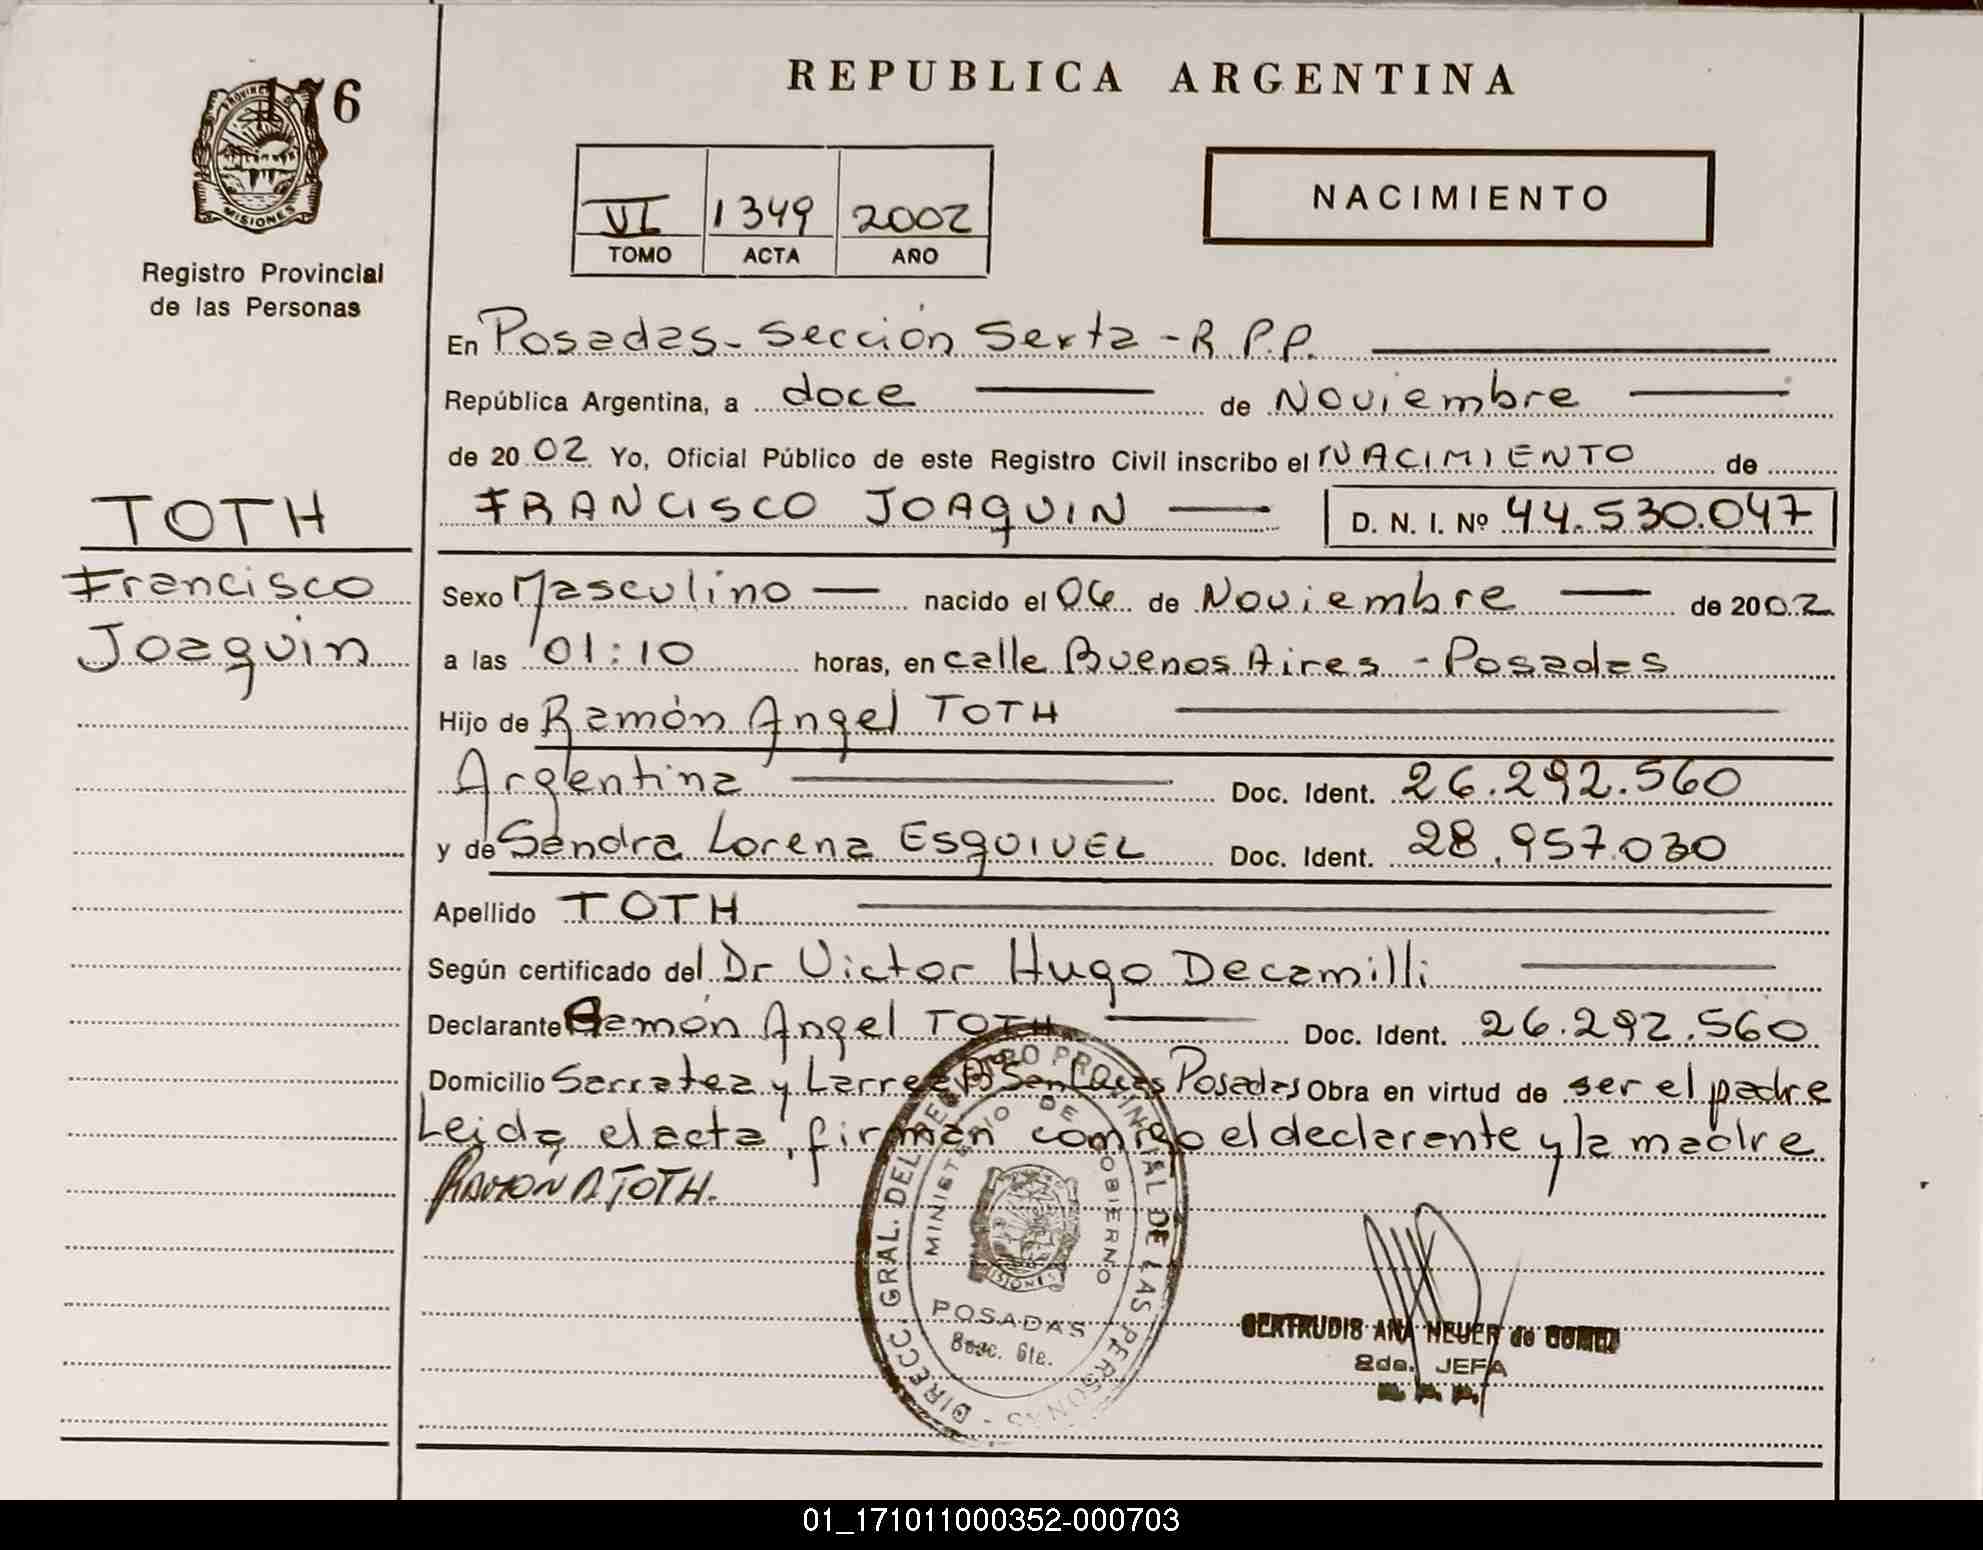 176
PROVINCIA DE
MISIONES
Registro Provincial
de las Personas
REPUBLICA ARGENTINA
VI 1349 2002
TOMO ACTA AÑO
NACIMIENTO
En Posadas - Sección Sexta - R.P.P.
República Argentina, a doce de Noviembre
de 2002 Yo, Oficial Público de este Registro Civil inscribo el NACIMIENTO de
FRANCISCO JOAQUIN D. N. I. Nº 44.530.047
TOTH
Francisco
Joaquin
Sexo Masculino nacido el 06 de Noviembre de 2002
a las 01:10 horas, en calle Buenos Aires - Posadas
Hijo de Ramón Angel TOTH
Argentina Doc. Ident. 26.292.560
y de Sandra Lorena ESQUIVEL Doc. Ident. 28.957.030
Apellido TOTH
Según certificado del Dr Victor Hugo Decamilli
Declarante Ramón Angel TOTH Doc. Ident. 26.292.560
Domicilio Sarratea y Larrea Bº San Lucas Posadas Obra en virtud de ser el padre
Leida el acta, firman conmigo el declarante y la madre
RAMON A TOTH.
DIRECC. GRAL. DEL REGISTRO PROVINCIAL DE LAS PERSONAS -
MINISTERIO DE GOBIERNO
MISIONES
POSADAS
Secc. 6ta.
GERTRUDIS ANA NEUER de GOMEZ
2da. JEFA
01_171011000352-000703